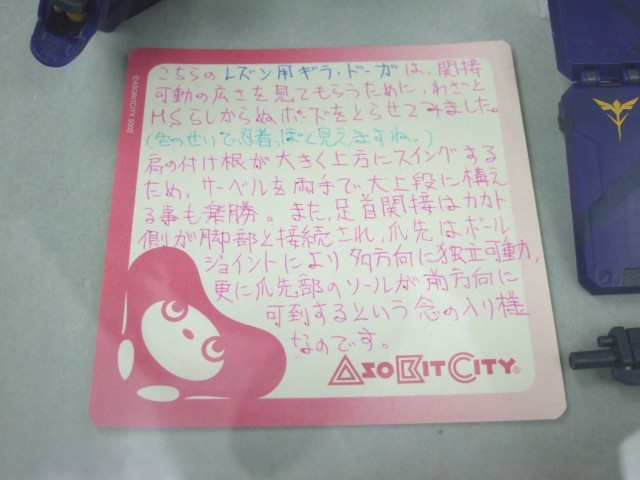 こちらの レズン用ギラ・ドーガは、関接
可動の広さを見てもらうために、わざと
MSらしからぬポーズをとらせてみました。
(色のせいで忍者っぽく見えますね。)
肩の付け根が大きく上方にスイングする
ため、サーベルを両手で大上段に構え
る事も楽勝。また、足首関接はカカト
側が脚部と接続され、爪先はボール
ジョイントにより多方向に独立可動、
更に爪先部のソールが前方向に
可到するという念の入り様
なのです。
ASOBITCITY®
©ASOBITCITY 2002